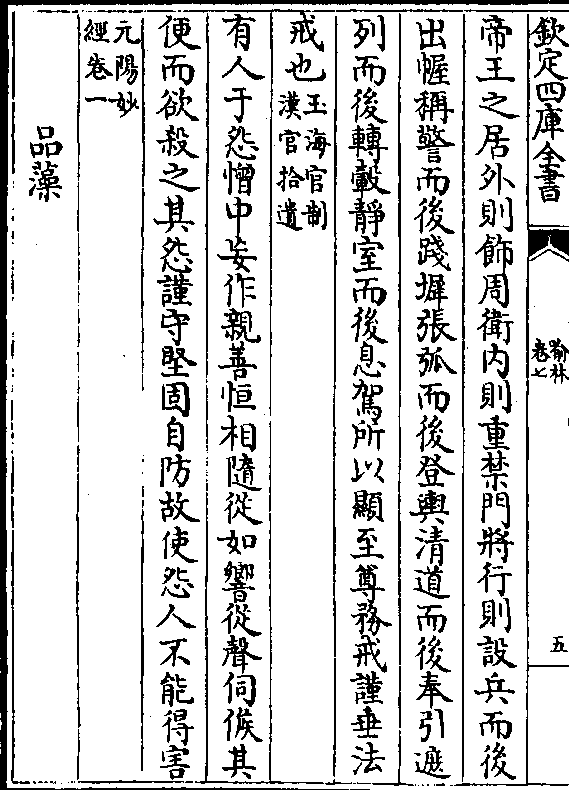 欽定四庫全書
喻林
卷七
五
帝王之居外則飾周衛内則重禁門將行則設兵而後
出幄稱警而後踐墀張弧而後登輿清道而後奉引遮
列而後轉轂靜室而後息駕所以顯至尊務戒謹垂法
戒也玉海官制
漢官拾遺
有人于怨憎中妄作親善恒相隨從如響從聲伺候其
便而欲殺之其怨謹守堅固自防故使怨人不能得害
元陽妙
經卷一
品藻